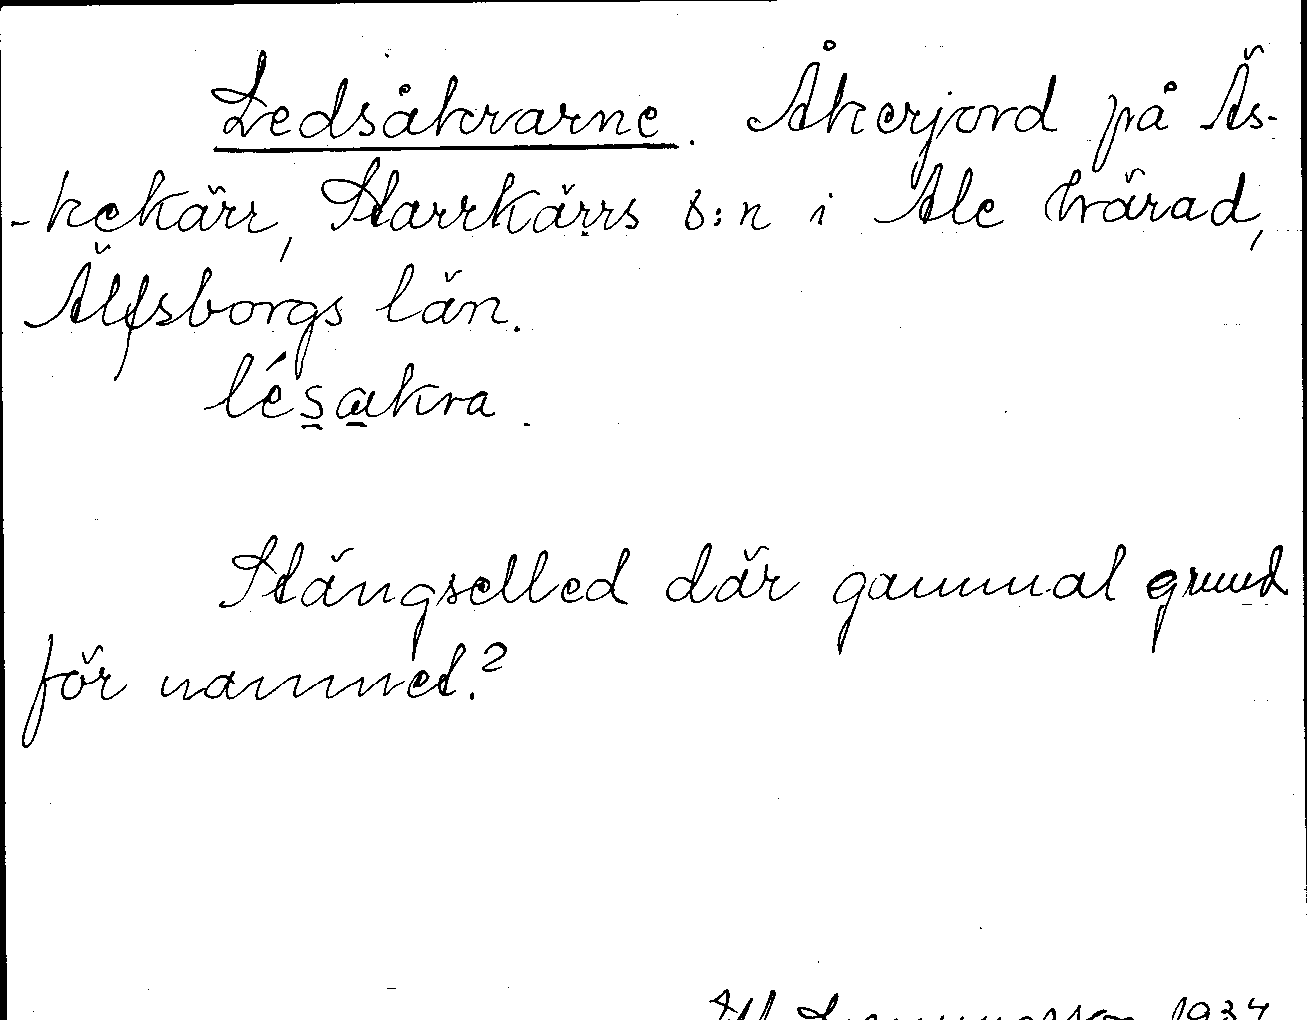 Ledsåkrarne. Åkerjord på Äs-
-kekärr, Starrkärrs s:n i Ale härad,
Älfsborgs län.
lésakra.
Stängselled där gammal grund
för namned.?
1934